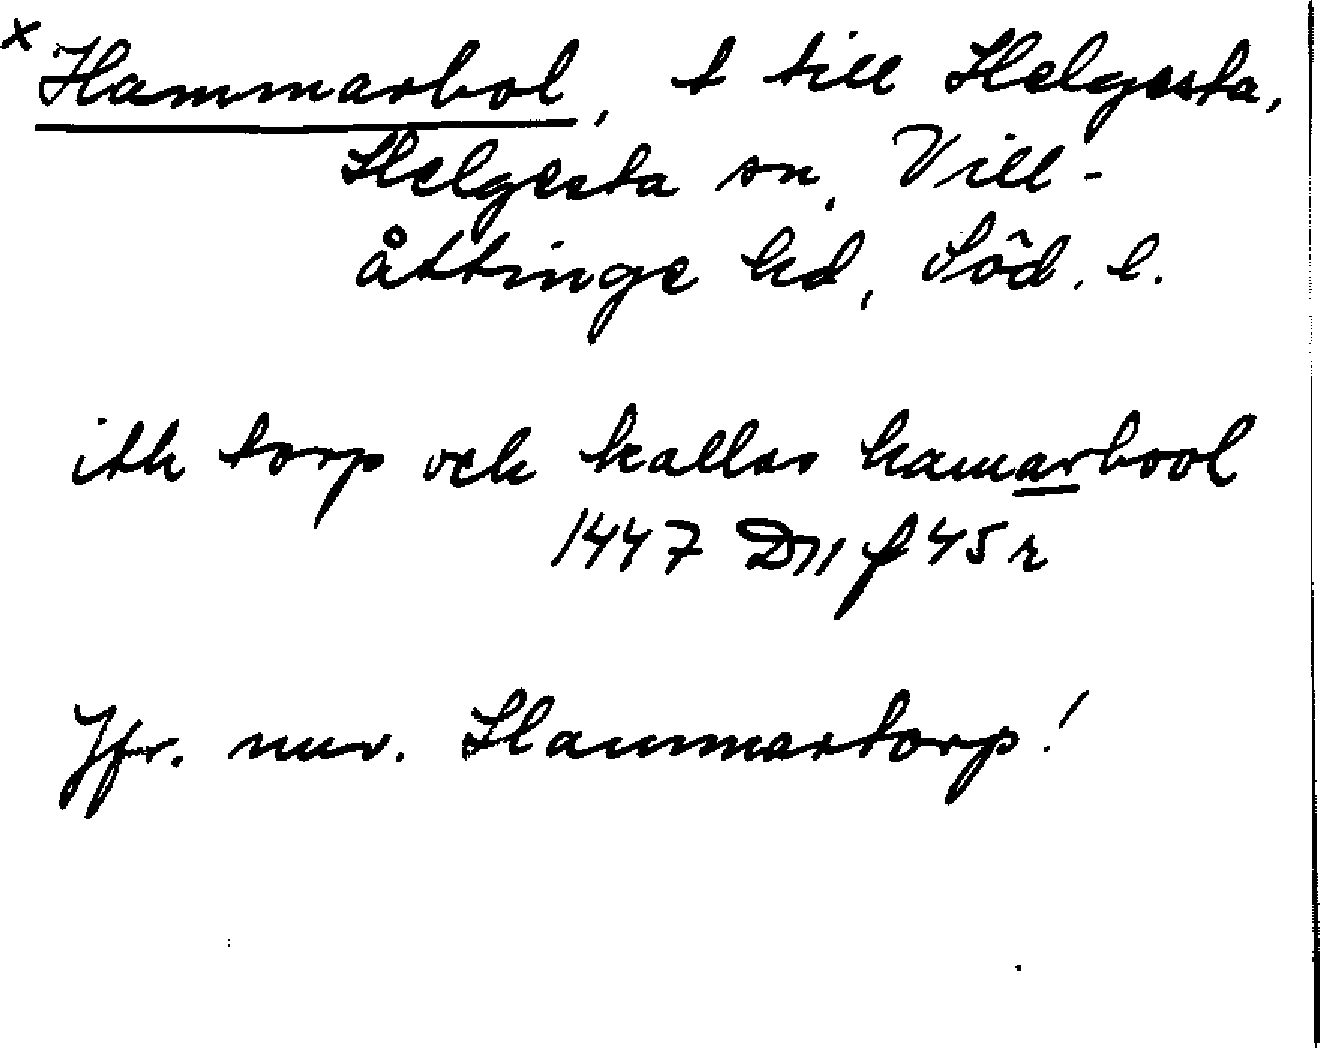 x Hammarbol, t till Helgesta,
Helgesta sn, Vill-
åttinge hd, Söd. l.
ith torp och kallas hamarbool
1447 D11 f 45 r
Jfr. nuv. Hammartorp!